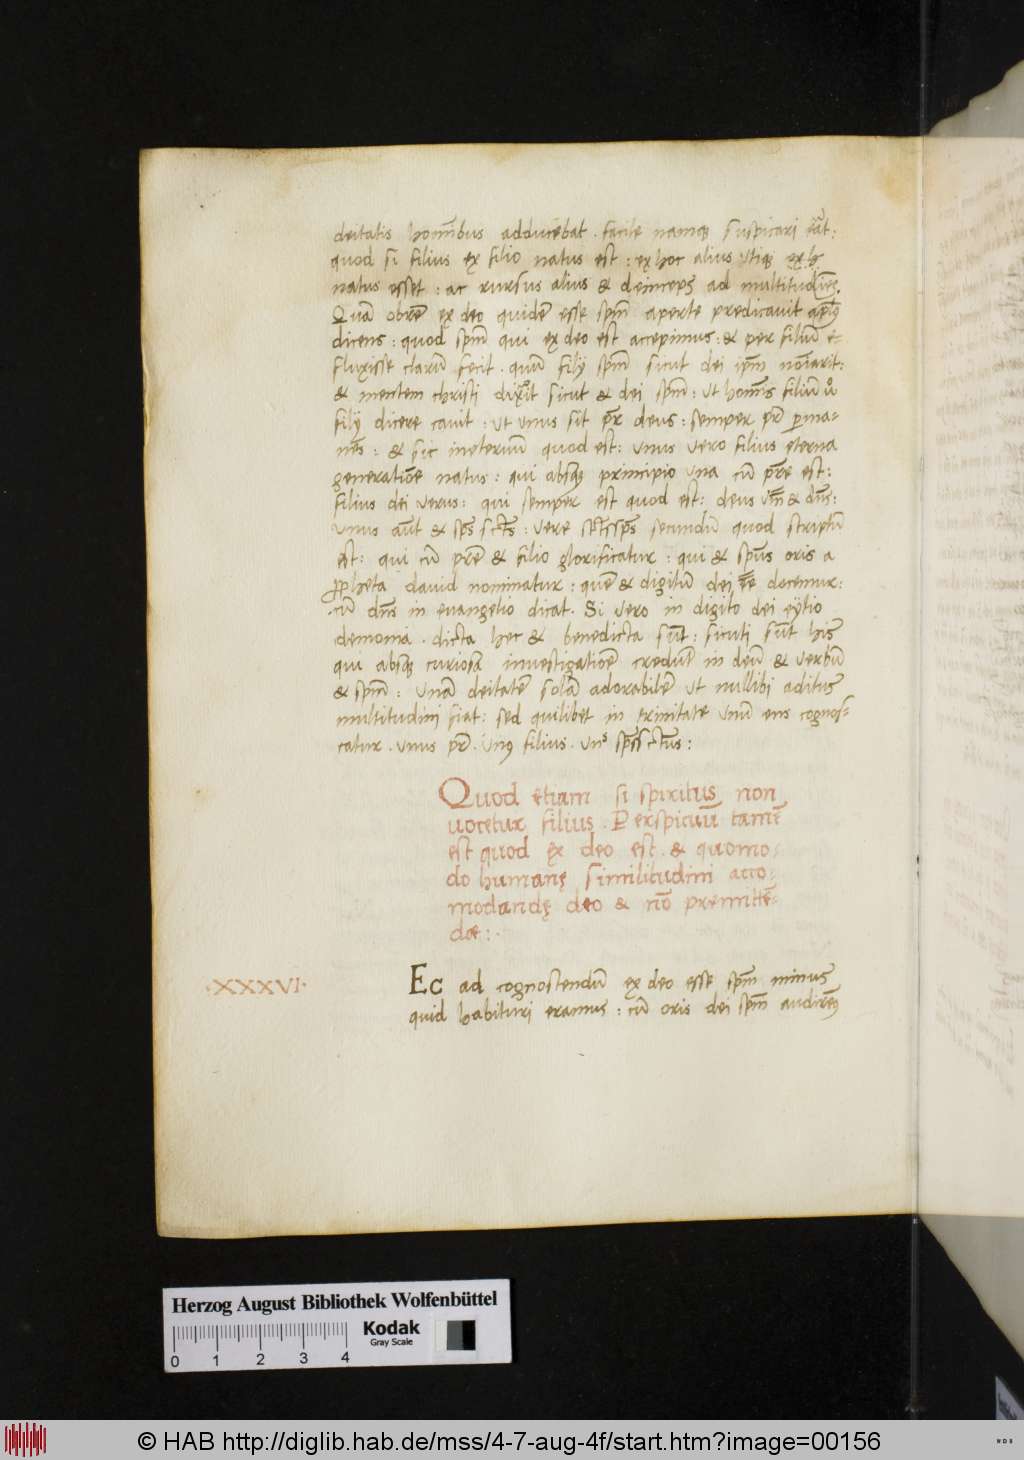 deitatis hom̄ībus adducēbat . facile namq; suspicari erāt:
quod si filius ex filio natus est : ex hoc alius utiq; ex h
natus esset : ac rursus alius & deinceps ad multitudinēs.
Quā obrē ex deo quidē esse spm̄ aperte predicavit apl̄us
dicens : quod spm̄ qui ex deo est accepimus : & per filiū e-
fluxisse clarū fecit . quū filij spm̄ sicut dei ip̄m no͞iarit:
& mentem christi dixit sicut & dei spm̄ : ut hom̄is filiū
filij dicere cavit : ut unus sit pr̄ deus : semper pr̄ perma-
nēs : & sic ineternū quod est : unus vero filius eterna
generatiōe natus : qui absq; principio una cū pr̄e est :
filius dei verus : qui semper est quod est : deus & dn̄s :
unus aūt & sps̄ sct̄s : vere sct̄s sps̄ secundū quod scriptū
est : qui cū pr̄e & filio glorificatur : qui & spūs oris a
ppheta david nominatur : quē & digitū dei eē docemur :
cū dn̄s in evangelio dicat . Si vero in digito dei eijtio
demonia . dicta hec & benedicta sūt : sicuti sūt his
qui absq; curiosā investigatiōē credūt in deū & verbū
& spm̄ : unā deitatē solā adorabilē ut nullibi aditus
multitudini fiat : sed quilibet in trinitate unū ens cognos-
catur . unus pr̄ . unus filius . uns sps̄ sctūs :
Quod etiam si spiritus non
uocetur filius . Perspicuū tamē
est quod ex deo est . & quomo-
do humanę similitudini acco-
modandę deo & nō premittē-
dae : .
.XXXVI. Ec ad cognoscendū ex deo esse spm̄ minus
quid habituri eramus : cū oris dei spm̄ audirem;
Herzog August Bibliothek Wolfenbüttel
Kodak
Gray Scale
0 1 2 3 4
© HAB http://diglib.hab.de/mss/4-7-aug-4f/start.htm?image=00156